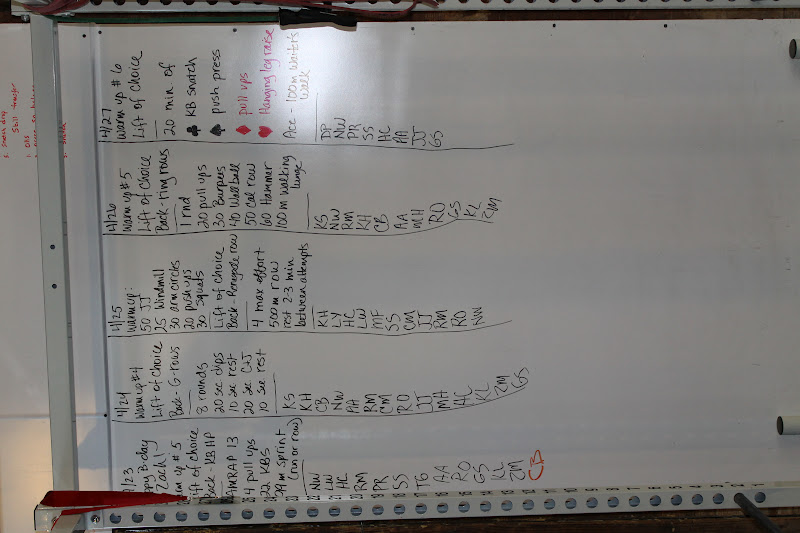 4/23
B-day
Zach!
warm up # 5
Lift of Choice
Back - KB HP
AMRAP 13
pull ups
22 KBS
m sprint
(run or row)
NW
LW
HC
RM
PR
SS
TG
AA
RO
GS
KL
ZM
CB
4/24
Warm up #4
Lift of Choice
Back - G-rows
8 rounds
20 sec dips
10 sec rest
20 sec C+J
10 sec rest
KS
KH
CB
NW
AA
RM
CM
RO
JJ
MH
HC
KL
ZM
GS
4/25
Warmup:
50 JJ
25 Windmill
30 arm circles
20 push ups
30 Squats
Lift of Choice
Back - Renegade row
4 max effort
500 m row
rest 2-3 min
between attempts
KH
LY
HC
LW
MF
SS
CM
JJ
RM
RO
NW
4/26
Warm up # 5
Lift of Choice
Back - ring rows
1 rnd
20 pull ups
30 Burpees
40 Wall ball
50 Cal row
60 Hammer
100 m walking
lunge
KS
NW
RM
KH
CB
AA
MH
RO
GS
KL
ZM
4/27
Warm up # 6
Lift of Choice
20 min of
♣ KB snatch
♠ push press
♦ pull ups
♥ Hanging leg raise
Ace - 100 m Waiter's
Walk
DP
NW
PR
SS
HC
AA
JJ
GS